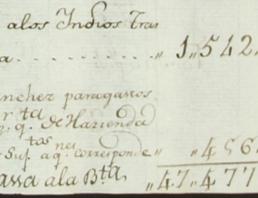 alos Indios Tras
a........ " 1,,542,
nchez paragastos
rta
q. de Hazienda
tas na
Sup. aq. corresponde " ,,456
assa ala Bta. ,,47,,477